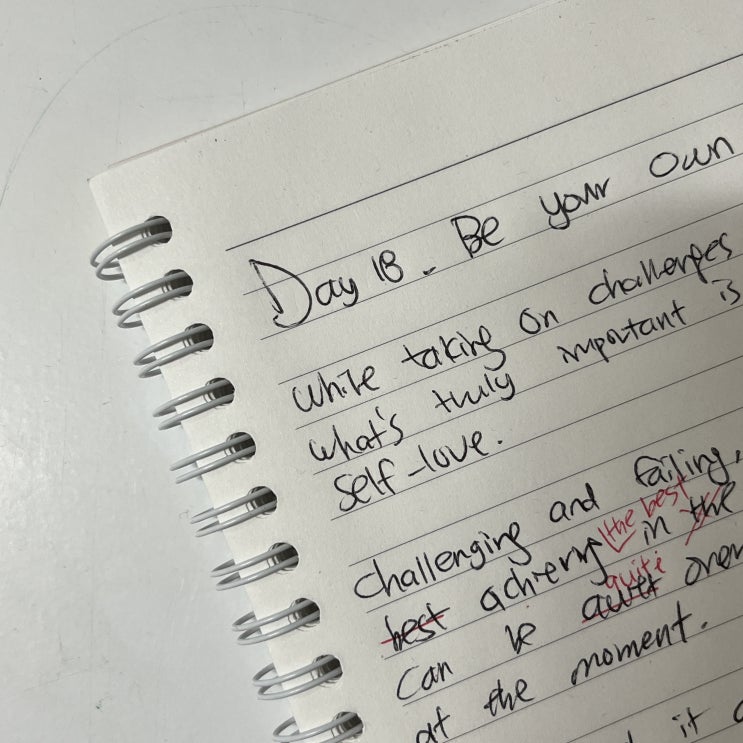 Day 18. Be your own
While taking on challenges
what's truly important is
self-love.
Challenging and failing,
the best
best in the
quite
can be
at the moment.
it